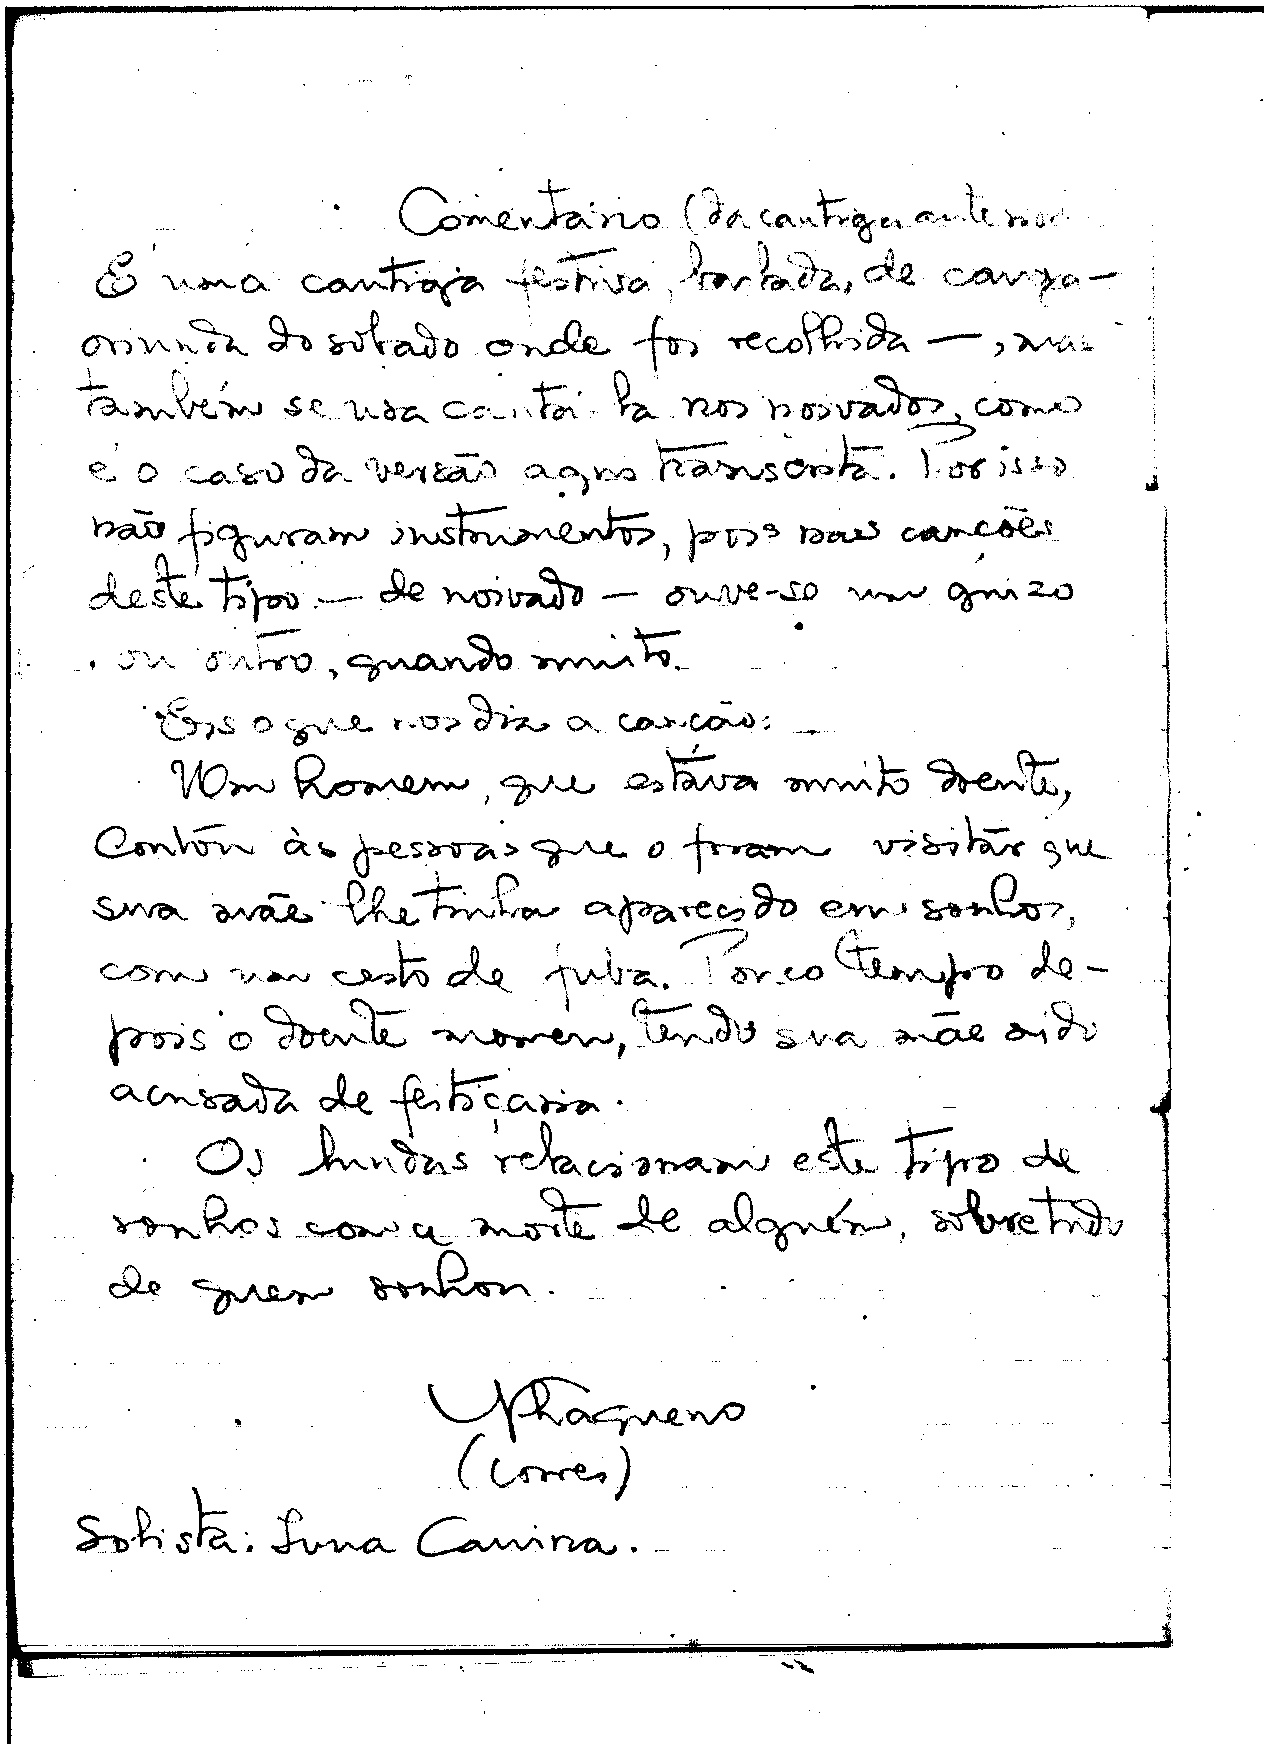 Comentário (da cantiga anterior
É uma cantiga festiva, bailada, de caráa-
oriunda do sobado onde foi recolhida —, mas
também se usa cantá-la nos noivados, como
é o caso da versão aqui transcrita. Por isso
não figuram instrumentos, pois nas canções
deste tipo — de noivado — ouve-se um guizo
ou outro, quando muito.
Eis o que nos diz a canção:
Um homem, que estáva muito doente,
contou às pessoas que o foram visitar que
sua mãe lhe tinha aparecido em sonhos,
com um cesto de fuba. Pouco tempo de-
pois o doente morreu, tendo sua mãe sido
acusada de feitiçaria.
Os lundas relacionam este tipo de
sonhos com a morte de alguém, sobretudo
de quem sonhou.
(Corres)
Solista: Luna Cawina.